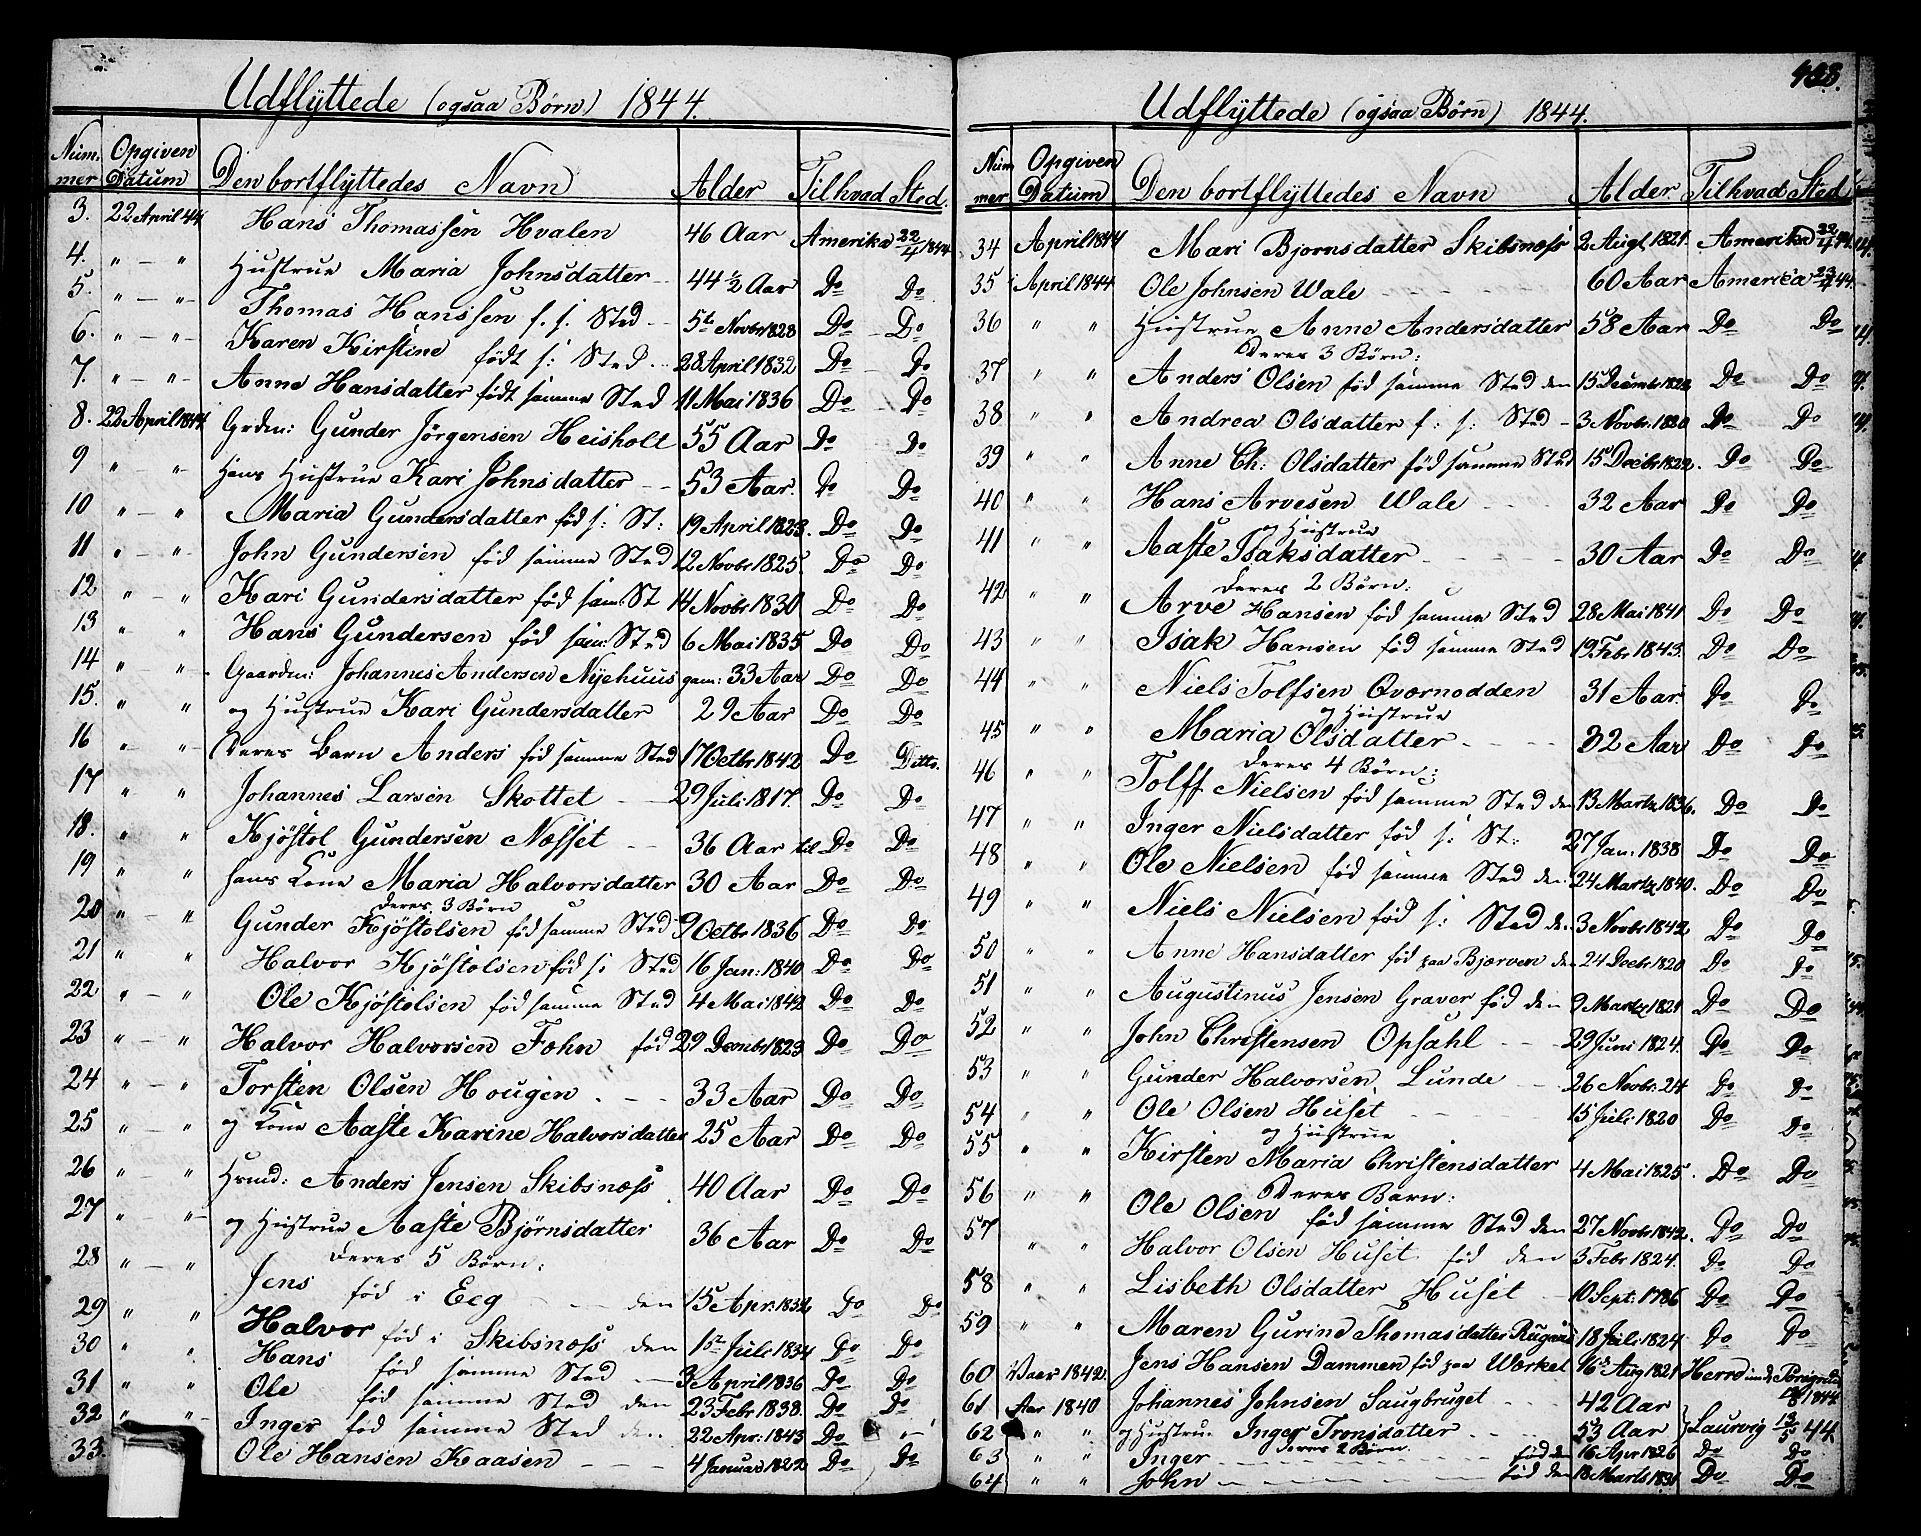 Udflyttede (ogsaa Børn) 1844.
Num. mer Opgiven Datum Den bortflyttedes Navn Alder Tilhvad Sted.
3. 22 April 44 Hans Thomassen Hvalen 46 Aar Amerika 22/4 1844
4. " — " Hustrue Maria Johnsdatter 44 1/2 Aar Do Do
5. " — " Thomas Hanssen f. s. Sted 5t Novbr 1828 Do Do
6. " — " Karen Kirstine født s: Sted 28 April 1832 Do Do
7. " — " Anne Hansdatter født samme Sted 11 Mai 1836 Do Do
8. 22 April 1844 Grden: Gunder Jörgensen Heisholt 55 Aar Do Do
9 " — " Hans Hustrue Kari Johnsdatter 53 Aar. Do Do
10 " — " Maria Gundersdatter fød s: St: 19 April 1823. Do Do
11 " — " John Gundersen fød samme Sted 12 Novbr 1825. Do Do
12 " — " Kari Gundersdatter fød sam: St 14 Novbr 1830 Do Do
13 " " Hans Gundersen fød sam: Sted 6 Mai 1835 Do Do
14 " — " Gaardm: Johannes Andersen Nyehuus gam: 33 Aar Do Do
15. " " og Hustrue Kari Gundersdatter 29 Aar Do Do
16 " — " Deres Barn Anders fød samme Sted 17 Octbr 1842 Do Ditto.
17 " " Johannes Larsen Skottet 29 Juli 1817. Do Do
18. " " Kjöstol Gundersen Næsset 36 Aar til Do Do
19 " " hans Kone Maria Halvorsdatter 30 Aar Do Do
Deres 3 Børn
20 " — " Gunder Kjöstolsen fød samme Sted 9 Octbr 1836 Do Do
21 " " Halvor Kjöstolsen fød s: Sted 16 Jan: 1840 Do Do
22 " — " Ole Kjöstolsen fød samme Sted 4 Mai 1842 Do Do
23 " — " Halvor Halvorsen Fæhn fød 29 Decembr 1823 Do Do
24 " — " Torsten Olsen Hougen 33 Aar Do Do
25 " — " og Kone Aaste Karine Halvorsdatter 25 Aar Do Do
26 " — " Hmd: Anders Jensen Skibsnæss 40 Aar Do Do
27 " — " og Hustrue Aaste Bjørnsdatter 36 Aar Do Do
Deres 5 Børn:
28 " — " Jens fød i Eeg den 15 Apr: 1832 Do Do
29 " " Halvor fød i Skibsnæss den 1st Juli 1834 Do Do
30 " " Hans fød samme Sted 3 April 1836 Do Do
31 " " Ole fød samme Sted den 23 Febr 1838. Do Do
32 " " Inger fød samme Sted den 22 Apr: 1843 Do
33. Ole Hansen Kaasen 4 Januar 1822 Do Do
428.
Udflyttede (ogsaa Børn) 1844.
Num mer Opgiven Datum Den bortflyttedes Navn Alder. Tilhvad Sted
34 April 1844 Mari Bjornsdatter Skibsnæss 2 Augt. 1821. Amerika 22/4 44.
35 April 1844 Ole Johnsen Wale 60 Aar Amerika 23/4 44.
36 " " Hustrue Anne Andersdatter 58 Aar Do Do
Deres 3 Børn:
37 " " Anders Olsen fød samme Sted den 15 Decembr 1828 Do Do
38 " " Andrea Olsdatter f: s: Sted 3 Novbr. 1820 Do Do
39 " " Anne Ch: Olsdatter fød samme Sted 15 Decbr 1822. Do Do
40 " " Hans Arvesen Wale 32 Aar Do Do
og Hustrue
41 " " Aaste Isaksdatter 30 Aar Do Do
Deres 2 Børn:
42 " " Arve Hansen fød samme Sted 28 Mai 1841 Do Do
43 " " Isak Hansen fød samme Sted 19 Febr 1843. Do Do
44 " " Niels Tolfsen Qværnodden 31 Aar. Do Do
og Hustrue
45 " " Maria Olsdatter 32 Aar Do Do
Deres 4 Børn:
46 " " Tolff Nielsen fød samme Sted den 13 Martz 1836. Do Do
47 " " Inger Nielsdatter fød s: St: 27 Jan. 1838 Do Do
48 " " Ole Nielsen fød samme Sted den 24 Martz 1840. Do Do
49 " " Niels Nielsen fød s: Sted den 3 Novbr 1842 Do Do
50 " " Anne Hansdatter fød paa Bjærven den 24 Decbr 1820 Do Do
51 " " Augustinus Jensen Graver fød den 9 Martz 1821 Do Do
52 " " John Christensen Opsahl 29 Juni 1824. Do Do
53 " " Gunder Halvorsen Lunde 26 Novbr. 24 Do Do
54 " " Ole Olsen Huset 15 Juli 1820 Do Do
og Hustrue
55 " " Kirsten Maria Christensdatter 4 Mai 1825. Do Do
Deres Barn:
56 " " Ole Olsen fød samme Sted den 27 Novbr 1842. Do Do
57 " " Halvor Olsen Huset fød den 3 Febr 1824. Do Do
58 " " Lisbeth Olsdatter Huset 10 Sept: 1786 Do Do
59 " " Maren Gurine Thomasdatter 18 Juli 1824 Do Do
60 Vaar 1842. Jens Hansen Dammen fød paa Wærket 16 Aug 1821 Herre 1844.
61 Aar 1840 Johannes Johnsen Saugbruget 42 Aar
62 " " og Hustrue Inger Tronsdatter 53 Aar Laurvig 13/5 44.
Deres 2 Børn.
63 " " Inger fød den 16 Apr 1826 Do Do
64 " " John fød den 18 Marts 1831 Do Do